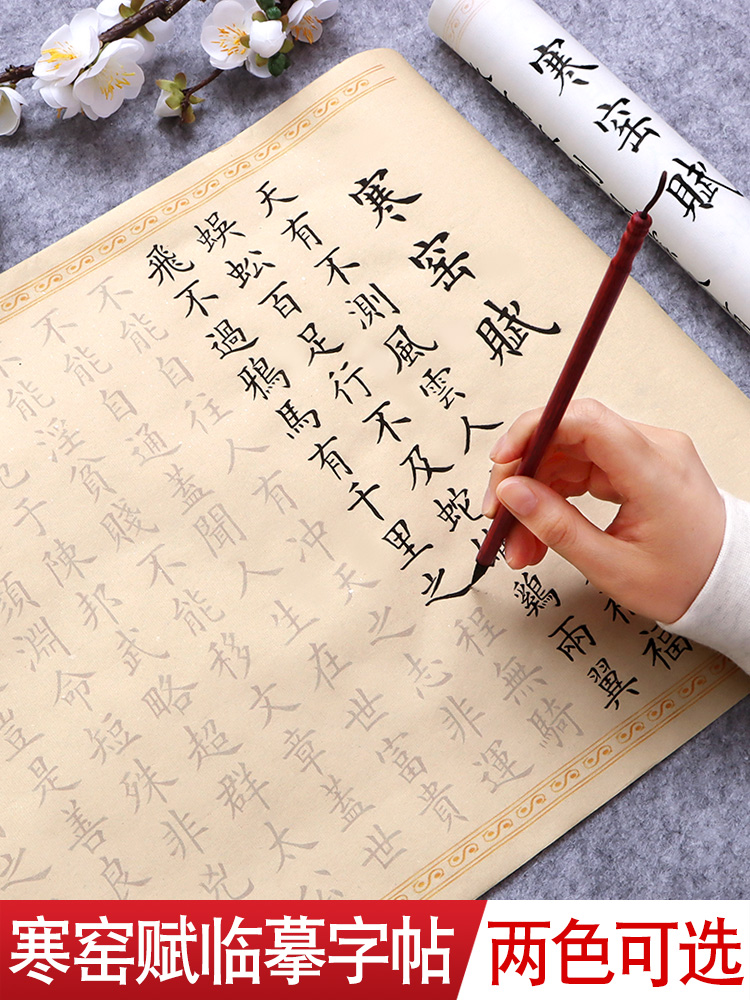 寒窑賦
寒窑賦
天有不測風雲人禍福
蜈蚣百足行不及蛇鷄兩翼
飛不過鴉馬有千里之程無騎
不能自往人有冲天之志非運
不能自通蓋聞人生在世富貴
不能淫貧賤不能移文章蓋世
于陳邦武略超群太公
淵命短殊非兇
豈是善良
之
寒窑赋临摹字帖
两色可选